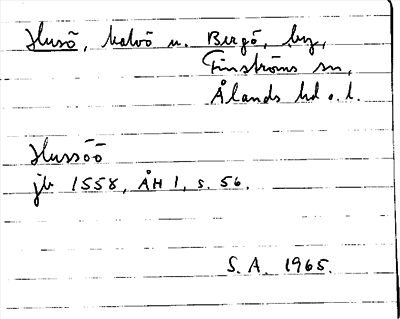 Husö, halvö u. Bergö, by,
Finströms sn,
Ålands hd o. l.
Hussöö
jb 1558, ÅH 1, s. 56.
S.A. 1965.